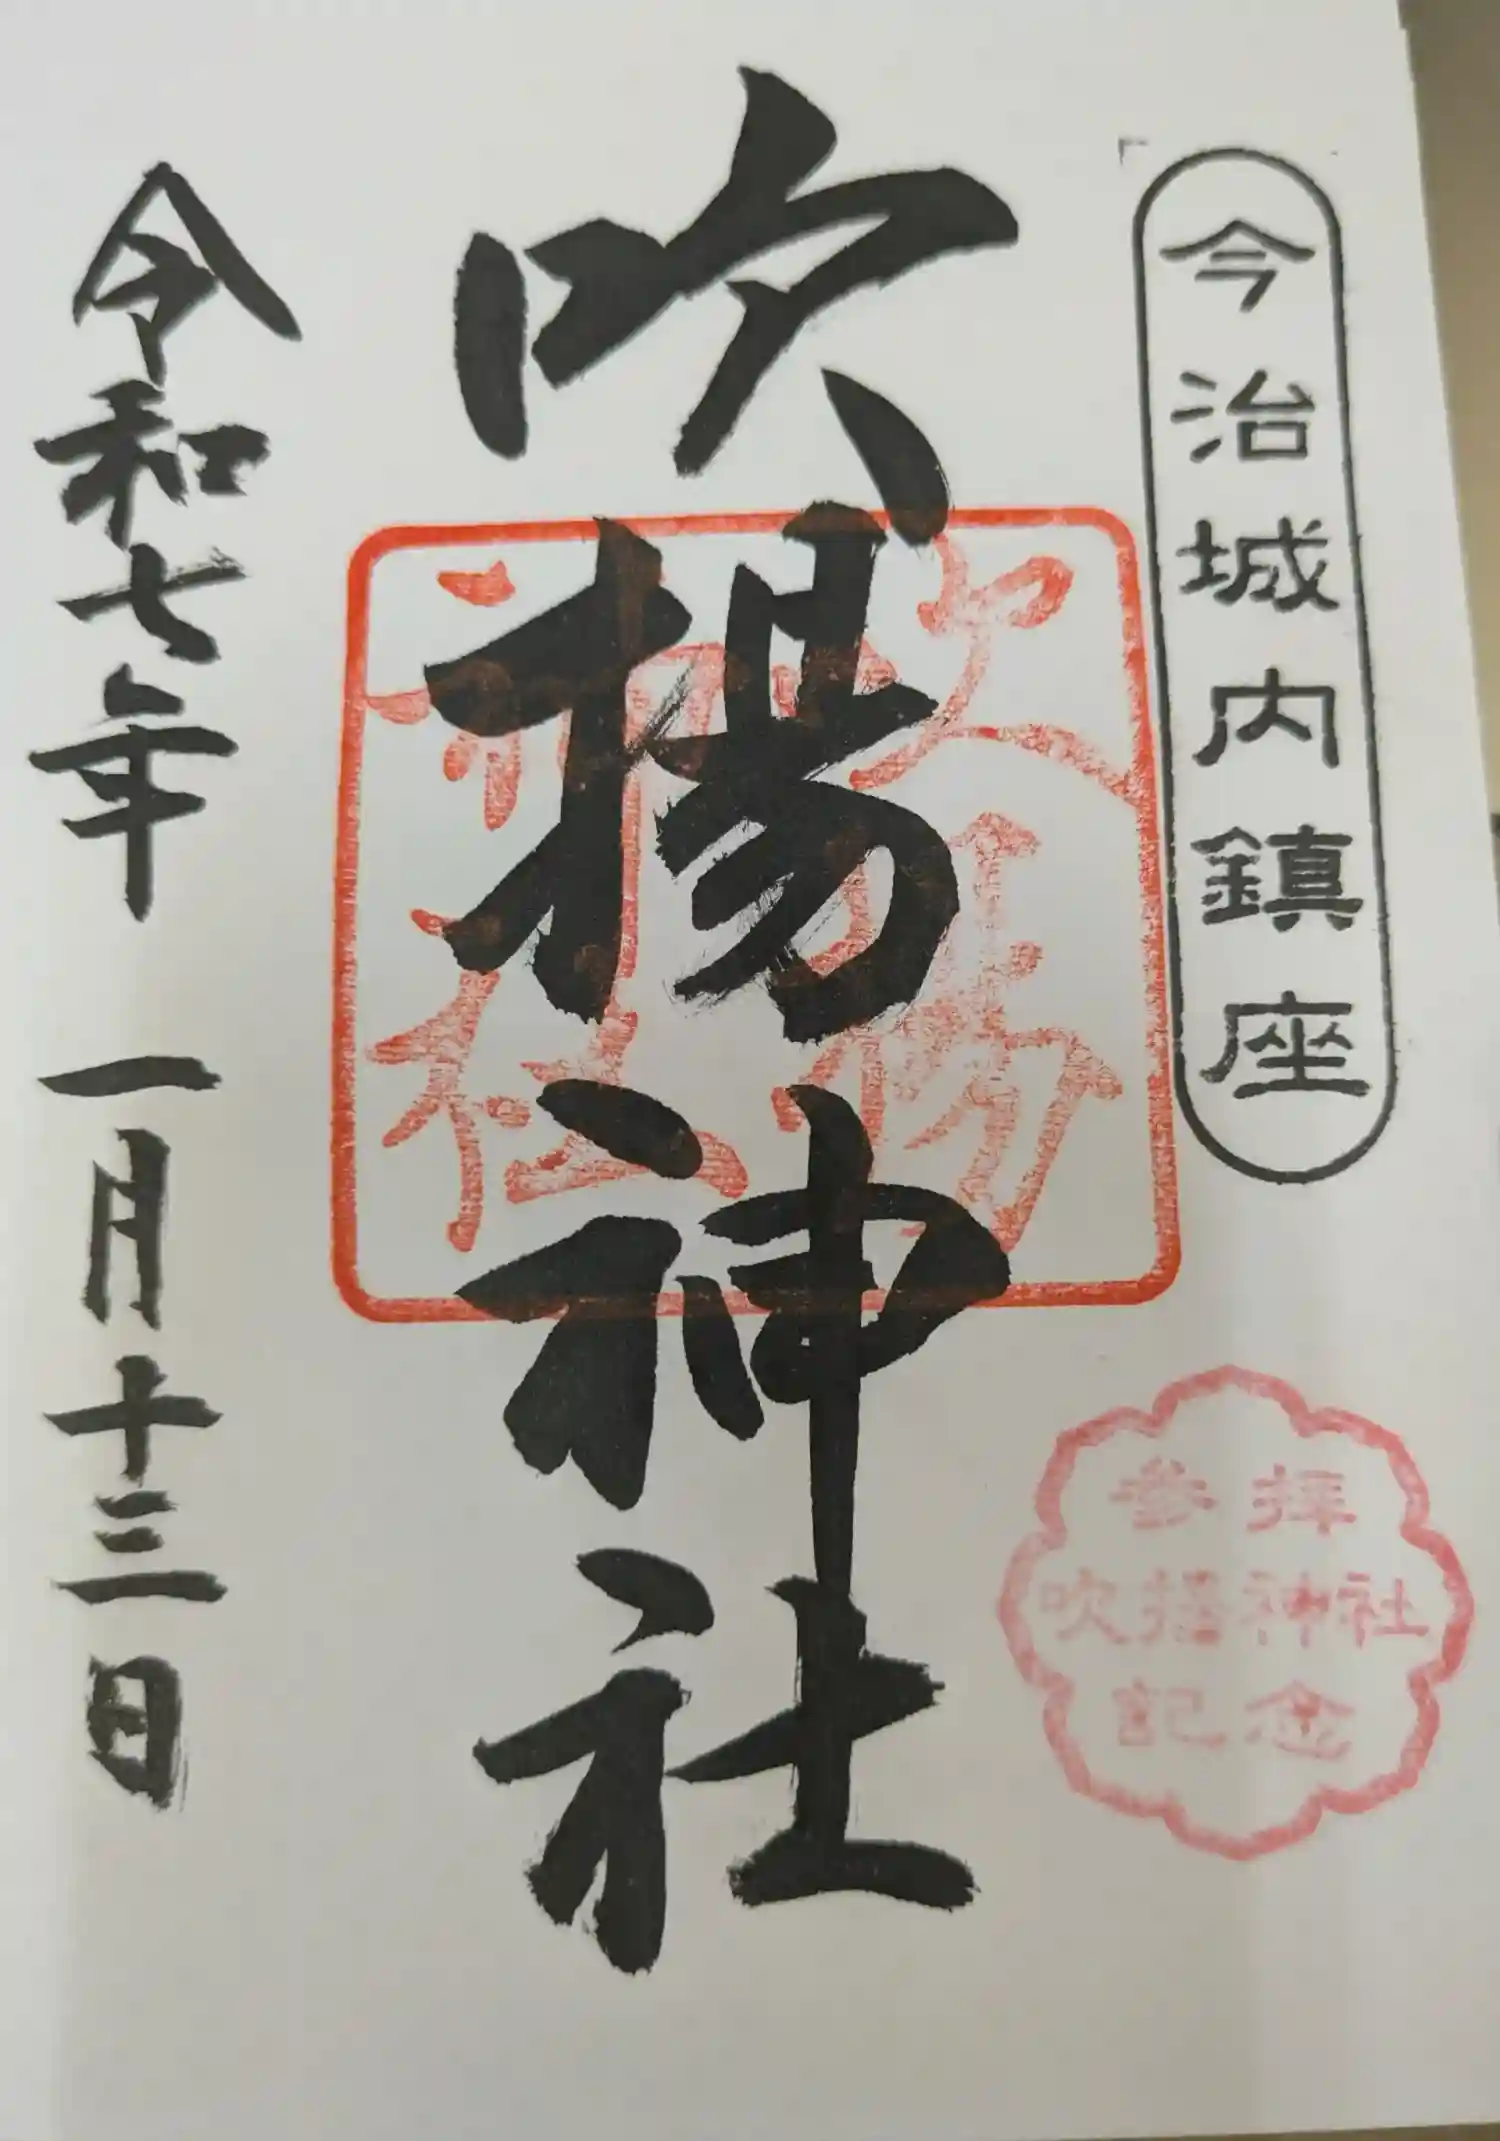 今治城内鎮座
吹揚神社
吹揚
神社
参拝
吹揚神社
記念
令和七年 一月十三日